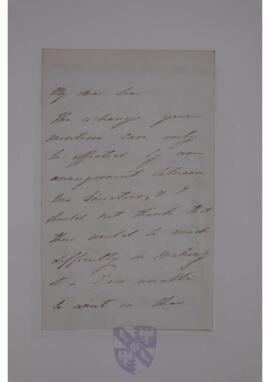 My dear Sir
The exchange you
mention can only
be effected by an
arrangement between
two Senators, & I
should not think that
there would be much
difficulty in making
it – I am unable
to assist in the